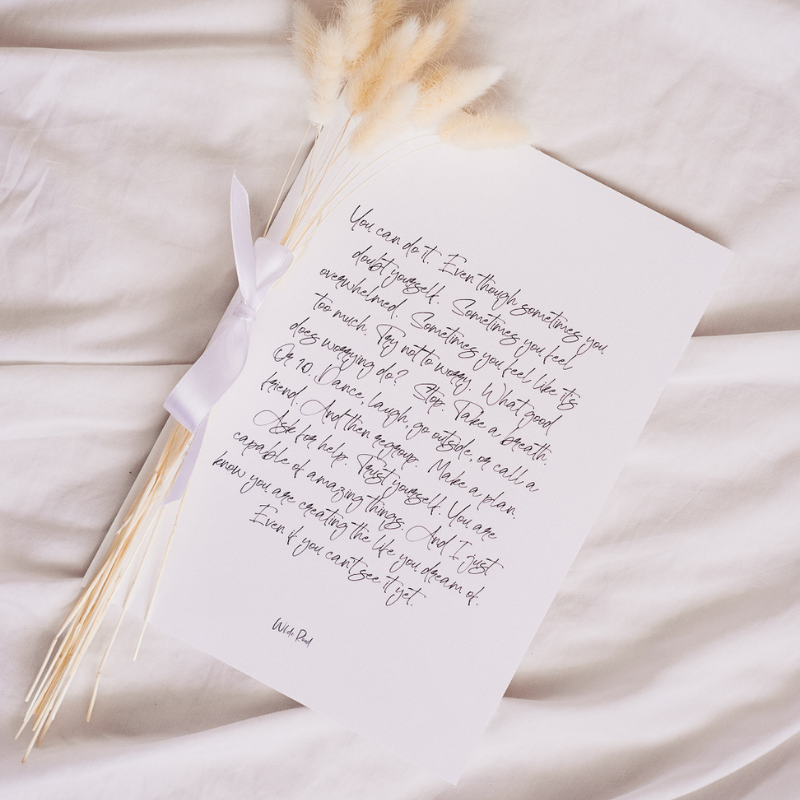 You can do it. Even though sometimes you
doubt yourself. Sometimes you feel
overwhelmed. Sometimes you feel like it's
too much. Try not to worry. What good
does worrying do? Stop. Take a breath.
Or 10. Dance, laugh, go outside, or call a
friend. And then regroup. Make a plan.
Ask for help. Trust yourself. You are
capable of amazing things. And I just
know you are creating the life you dream of.
Even if you can't see it yet.